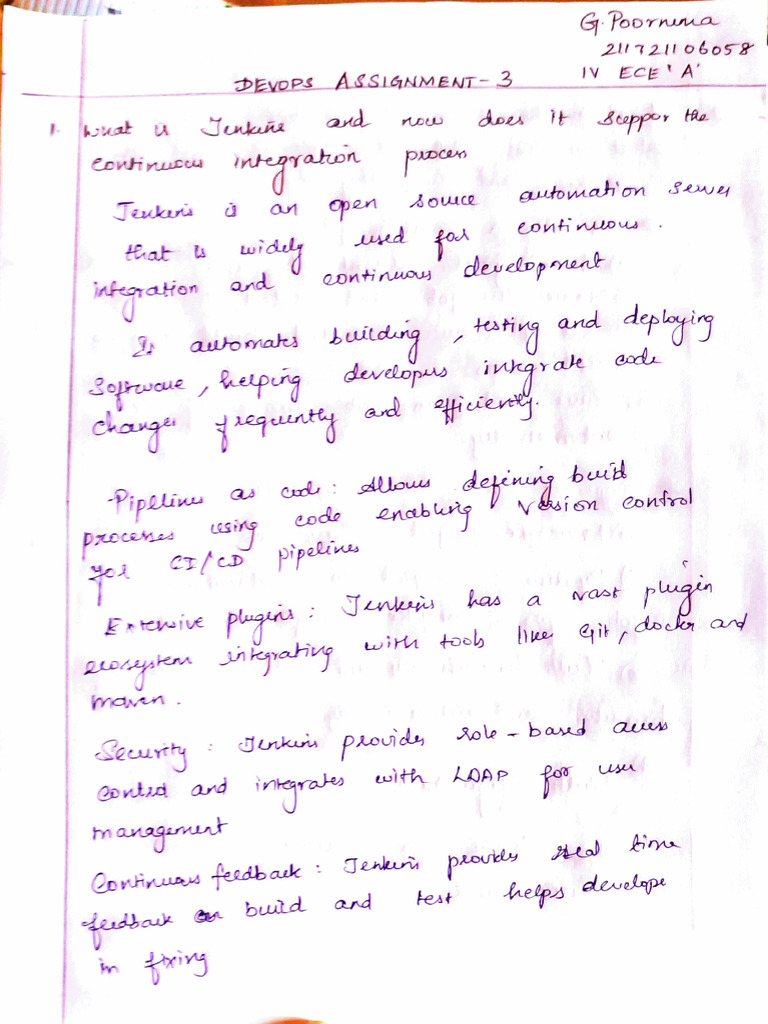 G. Poornima
211721106058
IV ECE 'A'
DEVOPS ASSIGNMENT - 3
1. What is Jenkins and how does it suppor the
continuous integration process
Jenkins is an open source automation server
that is widely used for continuous.
integration and continuous development
It automates building, testing and deploying
Software, helping developers integrate code
changes frequently and efficiently.
-Pipelines as code: Allows defining build
processes using code enabling version control
for CI/CD pipelines
Extensive plugins: Jenkins has a vast plugin
ecosystem integrating with tools like Git, docker and
maven.
Security: Jenkins provides role-based access
control and integrates with LDAP for user
management
Continuous feedback: Jenkins provides real time
feedback on build and test helps develope
in fixing